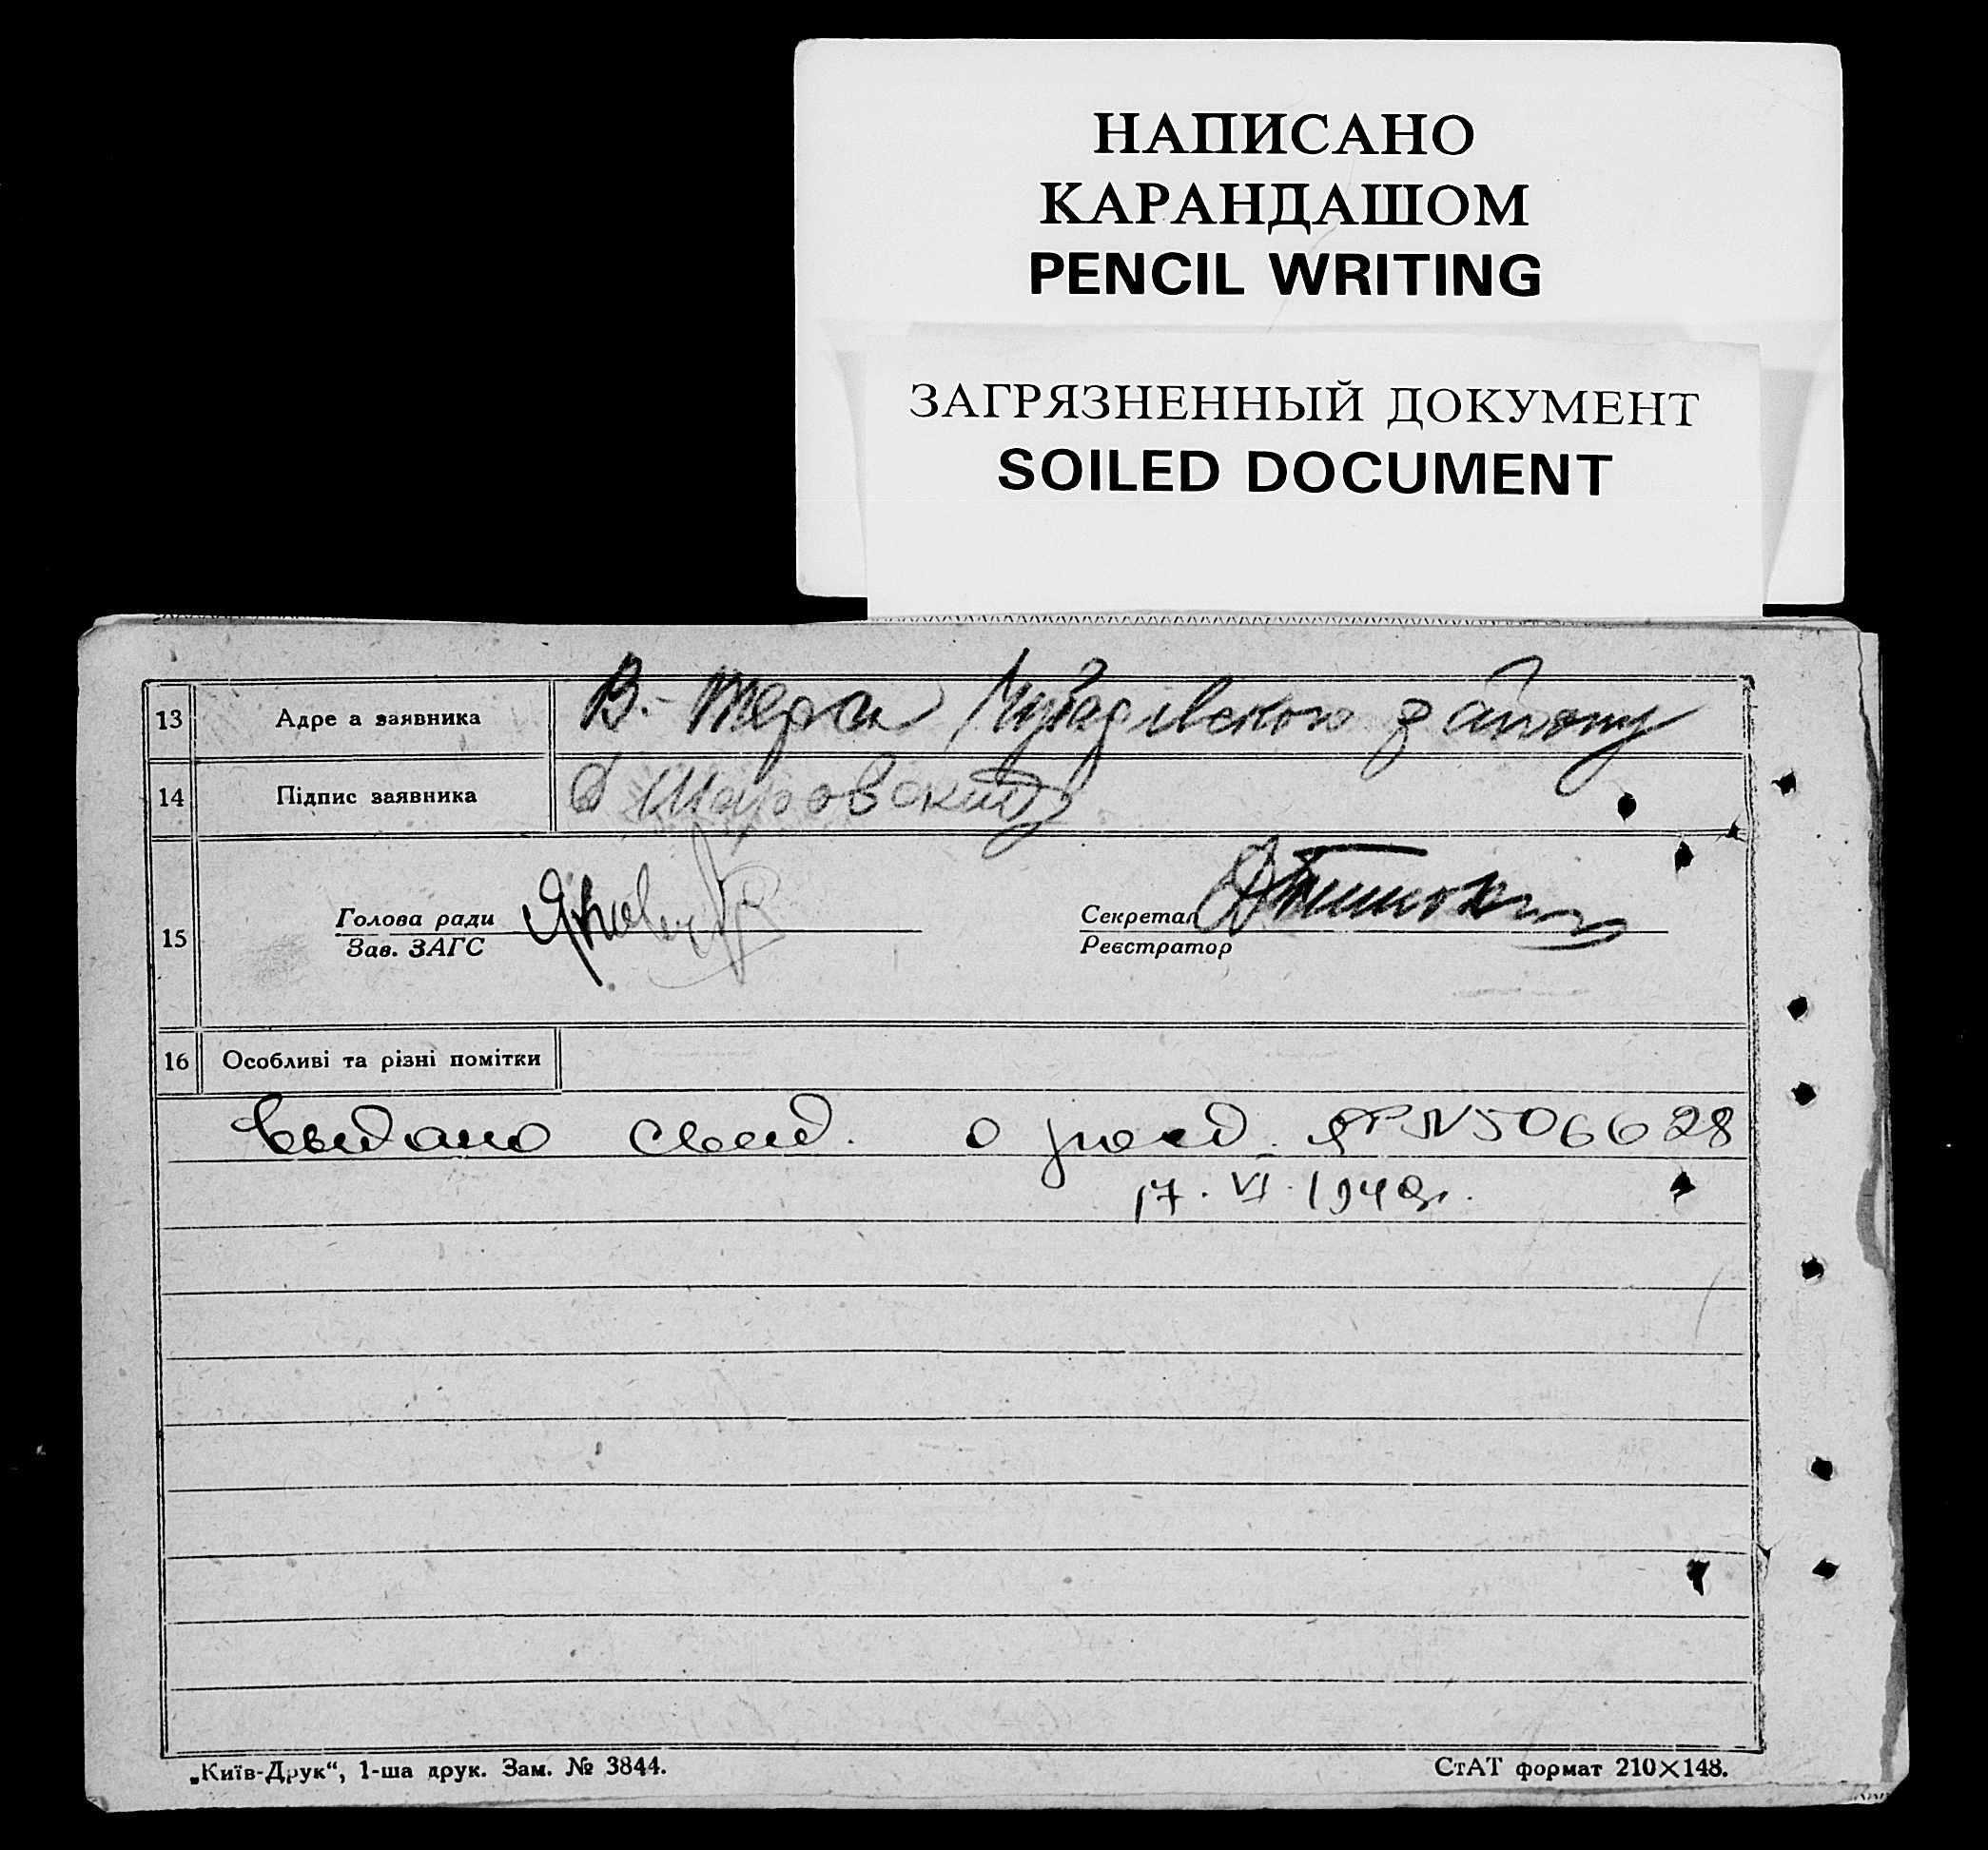 НАПИСАНО
КАРАНДАШОМ
PENCIL WRITING
ЗАГРЯЗНЕННЫЙ ДОКУМЕНТ
SOILED DOCUMENT
13 Адре а заявника В.-Терса району
14 Підпис заявника Шаровский
15 Голова ради
Зав. ЗАГС
Секретар
Реєстратор
16 Особливі та різні помітки
Выдано свид. о рожд. №506628
17. VI. 194
„Київ-Друк“, 1-ша друк. Зам. № 3844.
СтАТ формат 210×148.